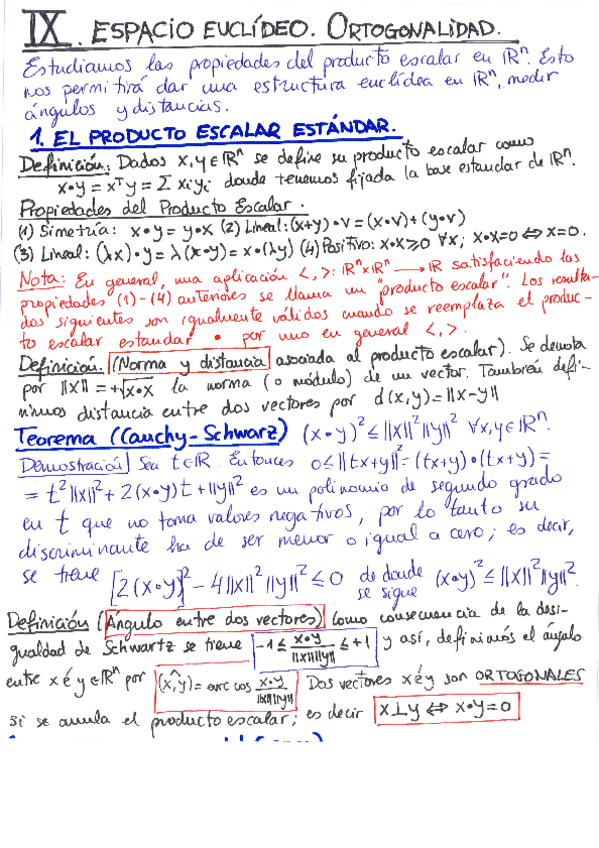 IX. ESPACIO EUCLÍDEO. ORTOGONALIDAD.
Estudiamos las propiedades del producto escalar en ℝⁿ. Esto
nos permitirá dar una estructura euclídea en ℝⁿ, medir
ángulos y distancias.
1. EL PRODUCTO ESCALAR ESTÁNDAR.
Definición: Dados x,y∈ℝⁿ se define su producto escalar como
x•y = xᵀy = Σ xᵢyᵢ donde tenemos fijada la base estandar de ℝⁿ.
Propiedades del Producto Escalar.
(1) Simetría: x•y = y•x (2) Lineal: (x+y)•v = (x•v)+(y•v)
(3) Lineal: (λx)•y = λ(x•y) = x•(λy) (4) Positivo: x•x ≥ 0 ∀x; x•x=0 ⇔ x=0.
Nota: En general, una aplicación <,>: ℝⁿxℝⁿ → ℝ satisfaciendo las
propiedades (1)-(4) anteriores se llama un "producto escalar". Los resulta-
dos siguientes son igualmente válidos cuando se reemplaza el produc-
to escalar estandar • por uno en general <,>.
Definición. (Norma y distancia asociada al producto escalar). Se denota
por ||x|| = +√x•x la norma (o módulo) de un vector. Tambien defi-
nimos distancia entre dos vectores por d(x,y) = ||x-y||
Teorema (Cauchy-Schwarz) (x•y)² ≤ ||x||² ||y||² ∀x,y∈ℝⁿ.
Demostración] Sea t∈ℝ. Entonces 0 ≤ ||tx+y||² = (tx+y)•(tx+y) =
= t² ||x||² + 2(x•y)t + ||y||² es un polinomio de segundo grado
en t que no toma valores negativos, por lo tanto su
discriminante ha de ser menor o igual a cero; es decir,
se tiene [2(x•y)]² - 4||x||² ||y||² ≤ 0 de donde se sigue (x•y)² ≤ ||x||² ||y||².
Definición (Ángulo entre dos vectores) Como consecuencia de la desi-
gualdad de Schwartz se tiene -1 ≤ x•y/||x|| ||y|| ≤ +1 y así, definimos el ángulo
entre x é y∈ℝⁿ por (x,y) = arc cos x•y/||x|| ||y|| Dos vectores x é y son ORTOGONALES
si se anula el producto escalar; es decir x⊥y ⇔ x•y=0